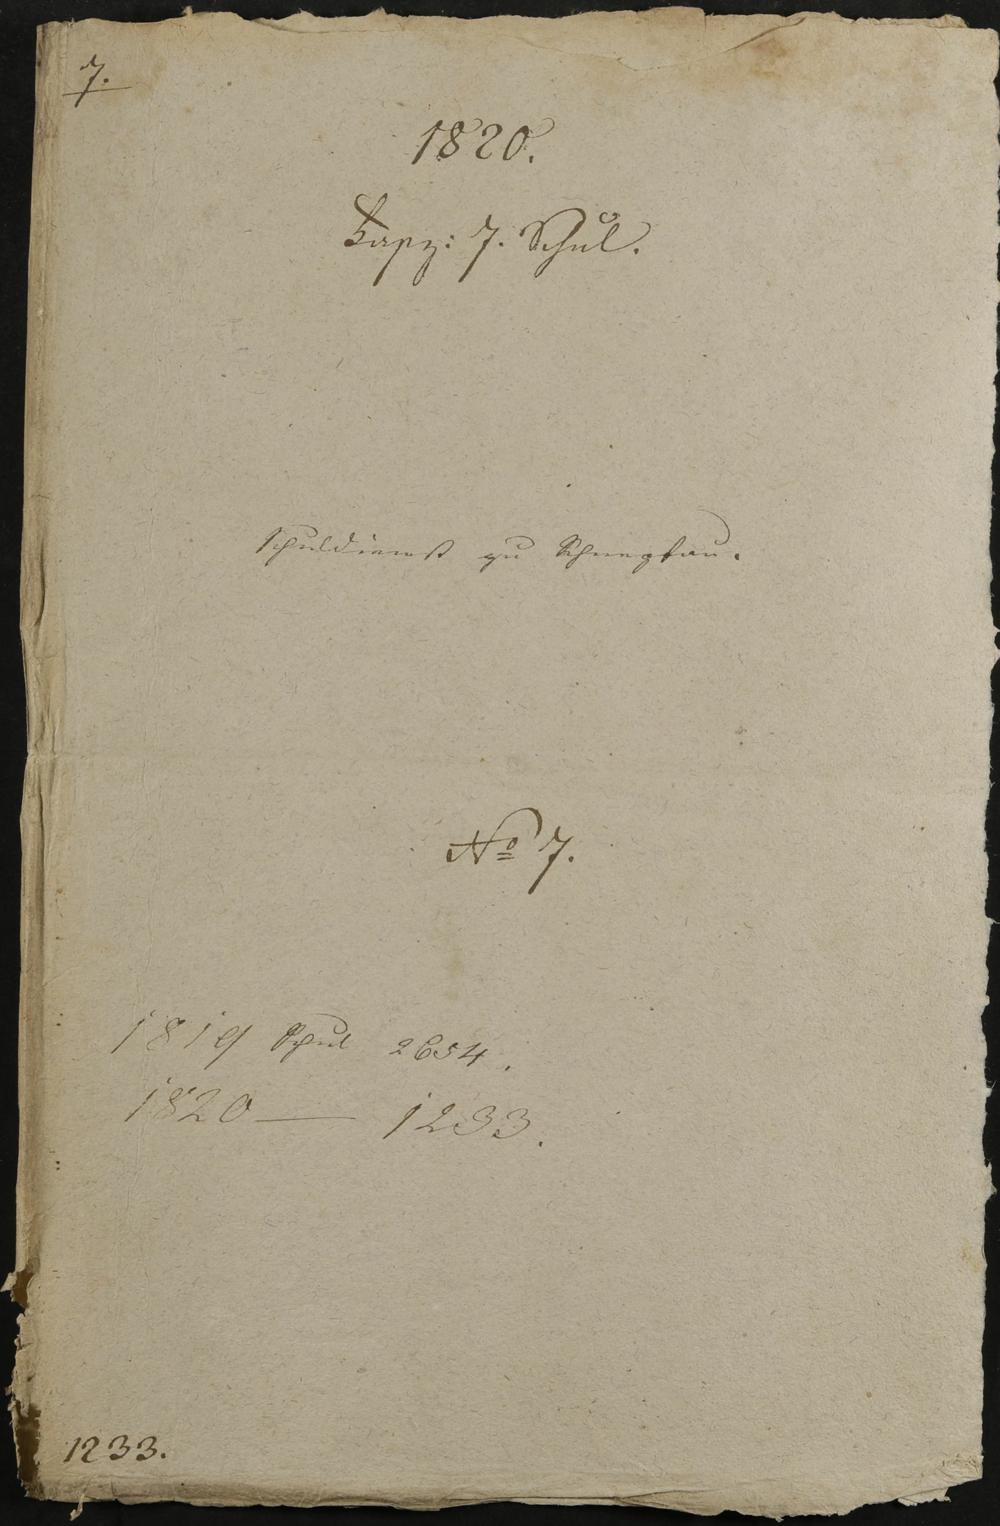 7.
1820.
Fasz: 7. Schul.
Schuldienst zu Schnepfau.
No 7.
1819 Schul 2654.
1820 — 1233.
1233.